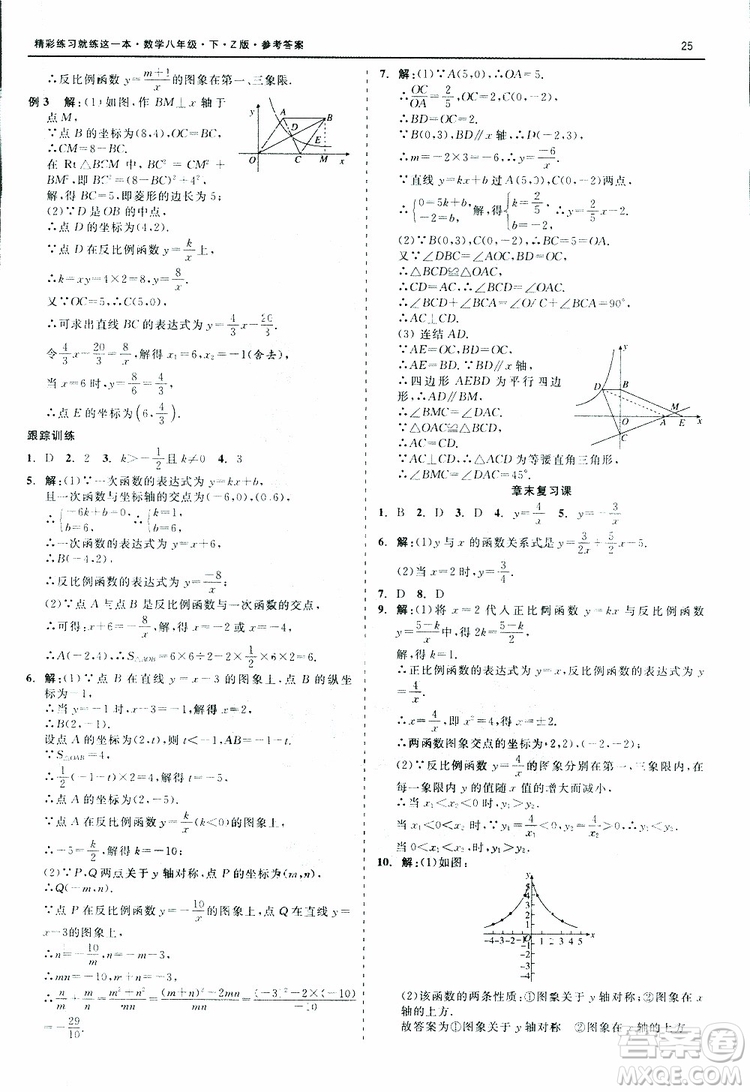 精彩练习就练这一本·数学八年级·下·Z版·参考答案
25
∴反比例函数y=(m+1)/x的图象在第一、三象限.
例3 解:(1)如图,作BM⊥x轴于
点M,
∵点B的坐标为(8,4),OC=BC,
∴CM=8-BC.
在Rt△BCM中,BC²=CM²+
BM²,即BC²=(8-BC)²+4²,
解得,BC=5.即菱形的边长为5.
(2)∵D是OB的中点,
∴点D的坐标为(4,2).
∵点D在反比例函数y=k/x上,
∴k=xy=4×2=8,y=8/x.
又∵OC=5,∴C(5,0),
∴可求出直线BC的表达式为y=4/3x-20/3.
令4/3x-20/3=8/x,解得x₁=6,x₂=-1(舍去),
当x=6时,y=4/3,
∴点E的坐标为(6,4/3).
跟踪训练
1. D 2. 2 3. k>-1/2且k≠0 4. 3
5. 解:(1)∵一次函数的表达式为y=kx+b,
且一次函数与坐标轴的交点为(-6,0),(0,6),
∴{-6k+b=0, b=6, ∴{k=1, b=6,
∴B(-2,4).
∴反比例函数的表达式为y=-8/x.
(2)∵点A与点B都在反比例函数的图象上,
6. 解:(1)∵点B在直线y=x-3的图象上,点B的纵坐
标为-1,
∴当y=-1时,x-3=-1,解得x=2,
∴B(2,-1).
设点A的坐标为(2,t),则t<-1,AB=-1-t.
∵S△OAB=4,
∴1/2(-1-t)×2=4,解得t=-5,
∴点A的坐标为(2,-5).
∵点A在反比例函数y=k/x(k<0)的图象上,
∴-5=k/2,解得k=-10.
(2)∵P,Q两点关于y轴对称,点P的坐标为(m,n),
∴Q(-m,n).
∵点P在反比例函数y=-10/x的图象上,点Q在直线
y=x-3的图象上,
∴n=-10/m,n=-m-3,
∴mn=-10,m+n=-3,
∴n/m+m/n=(m²+n²)/mn=((m+n)²-2mn)/mn=((-3)²-2×(-10))/-10
=-29/10.
7. 解:(1)∵A(5,0),∴OA=5.
∴OC/OA=2/5,∴OC=2,
∴BD=OC=2.
∵B(0,3),BD∥x轴,∴D(-2,3),
∴m=-2×3=-6,∴y=-6/x.
∵直线y=kx+b过C(0,-2),A(5,0)两点,
∴{0=5k+b, -2=b, 解得{k=2/5, b=-2, ∴y=2/5x-2.
(2)∵B(0,3),C(0,-2),∴BC=5=OA.
∵∠DBC=∠AOC,BD=OC,
∴△DBC≌△OAC,
∴CD=AC,
∴∠BCD=∠OAC,
∴AC⊥CD.
(3)连结AD.
∵AE=OC,BD=OC,
∴AE=BD.∵BD∥x轴,
∴四边形AEBD为平行四边形,
∴AD∥BM,
∴∠BMC=∠DAC.
∵△BCD≌△OAC,
∴AC=CD.
∵AC⊥CD,
∴△ACD为等腰直角三角形,
∴∠BMC=∠DAC=45°.
章末复习课
1. B 2. D 3. D 4. y=4/x 5. y=-3/x
6. 解:(1)y与x的函数关系式是y=3/(2x)+5/2x.
7. D 8. D
9. 解:(1)将x=2代入正比例函数y=kx与反比例函数
y=(5-k)/x中,得2k=(5-k)/2,
解得,k=1.
∴正比例函数的表达式为y=x,反比例函数的表达式为
y=4/x.
∴x=4/x,即x²=4,得x=±2.
∴两函数图象交点的坐标为(2,2),(-2,-2).
(2)∵反比例函数y=4/x的图象分别在第一、三象限内,在
每一象限内y的值随x值的增大而减小,
∴当x₁<x₂<0时,y₁>y₂.
当0<x₁<x₂时,y₁>y₂.
当x₁<0<x₂时,y₁<y₂.
10. 解:(1)如图:
(2)该函数的两条性质:①图象关于y轴对称;②图象在x
轴的上方.
故答案为①图象关于y轴对称 ②图象在x轴的上方